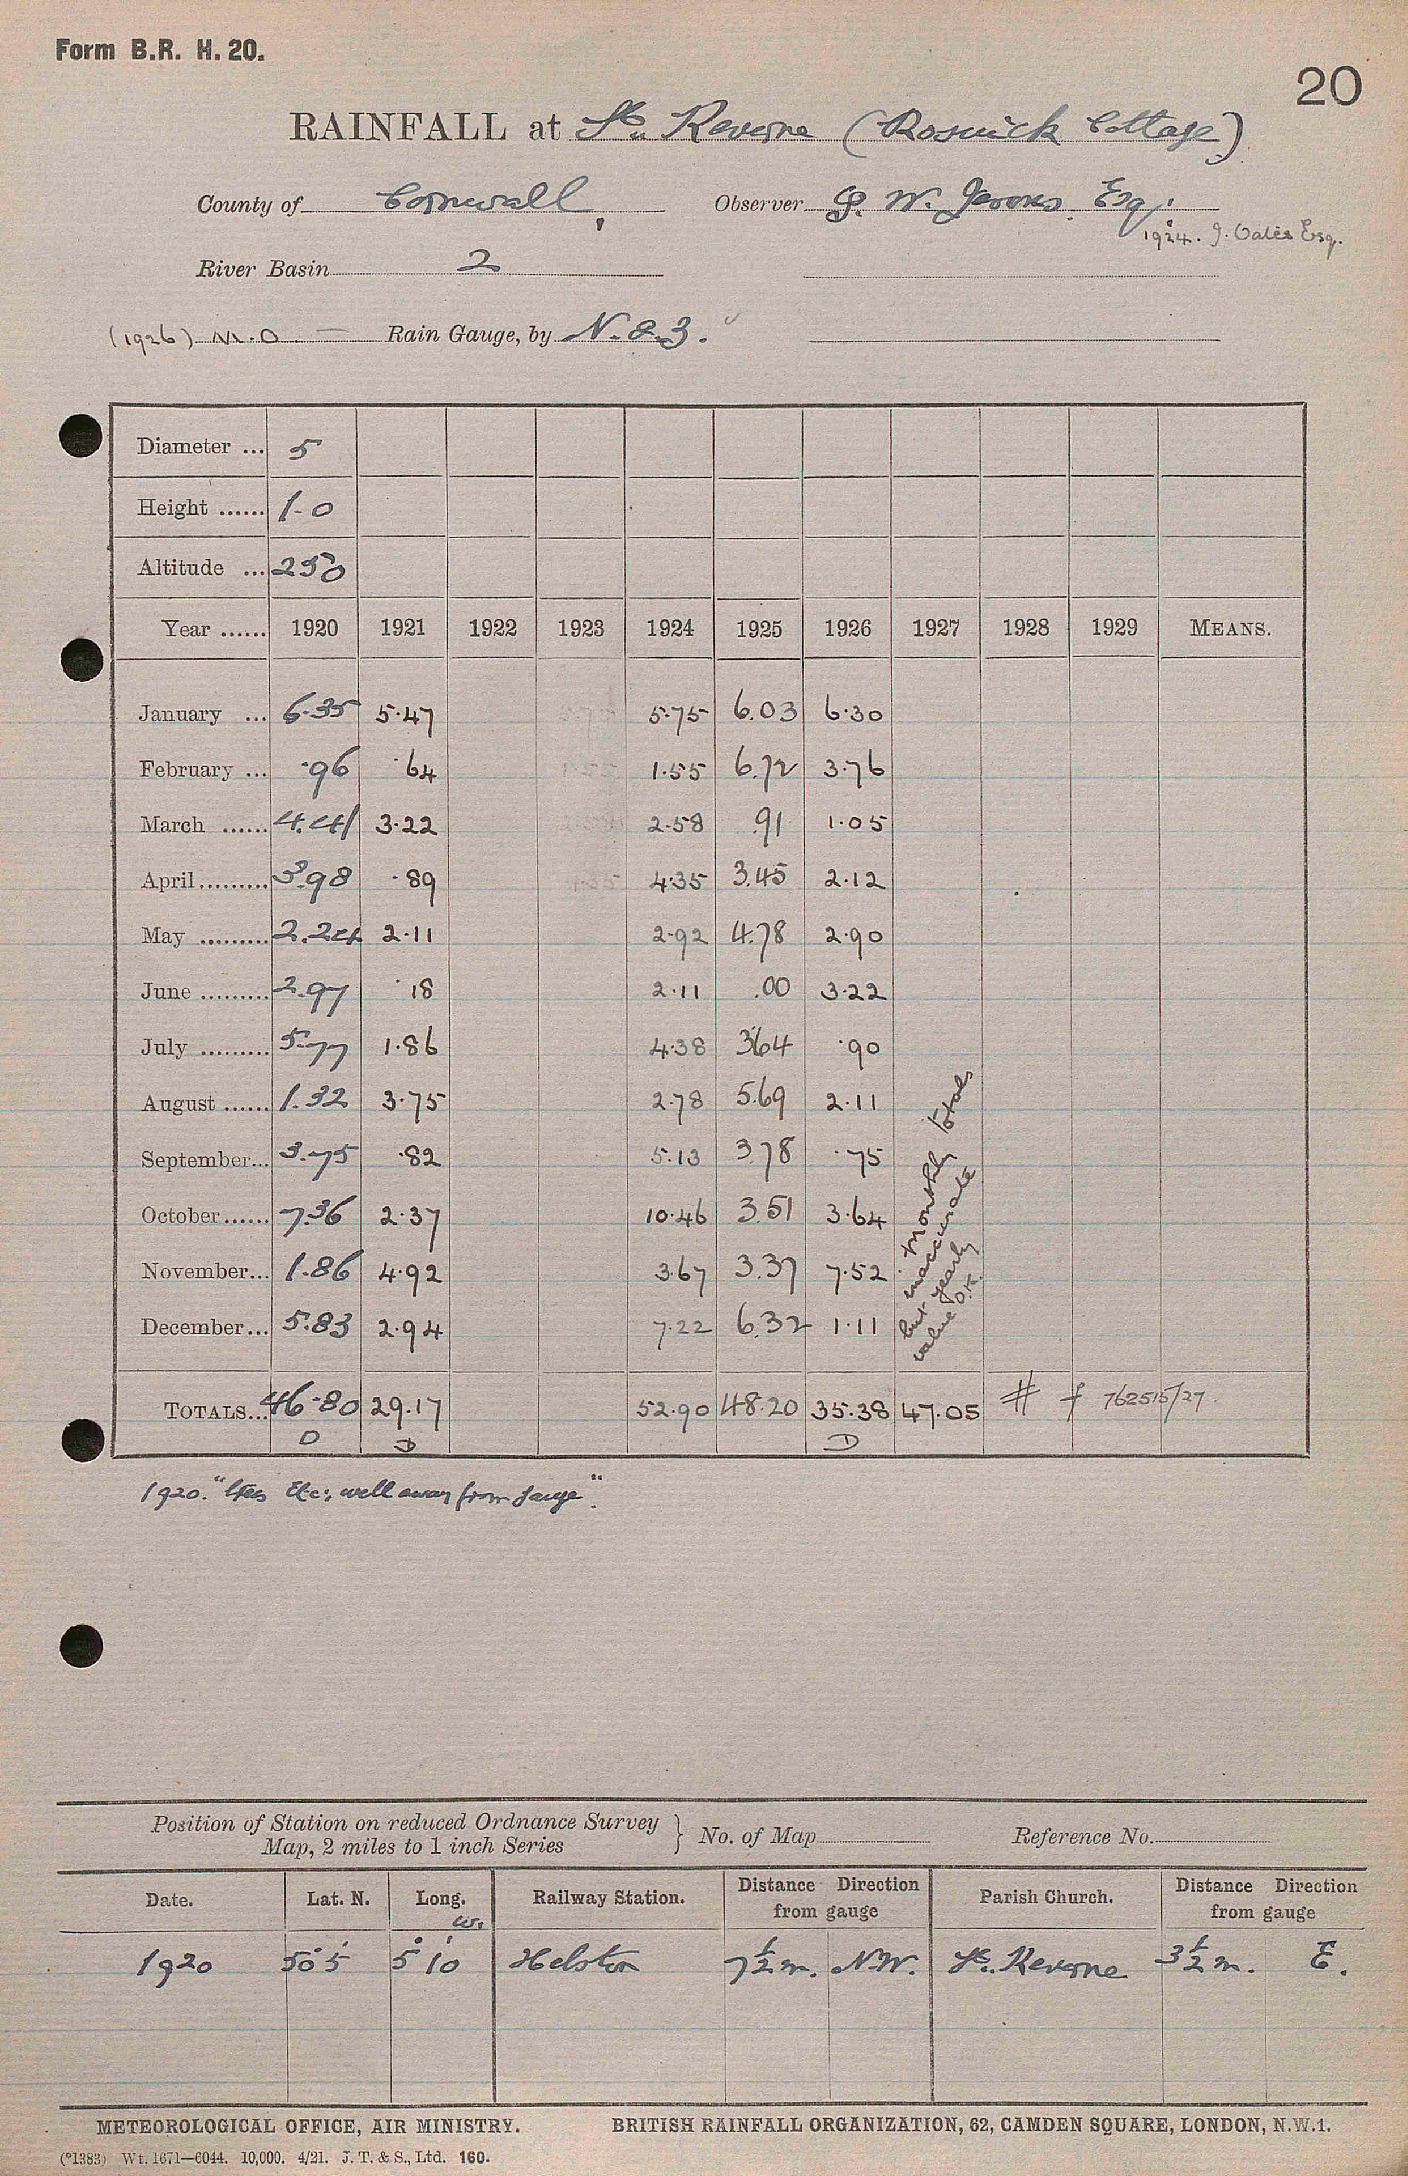 Form B.R. H. 20.
20
RAINFALL at St. Keverne (Roswick Cottage)
County of Cornwall, Observer W. Esq.
1924. J. Oates Esq.
River Basin 2
(1926) M.O — Rain Gauge, by N. & 3.
Diameter ... 5
Height ...... 1-0
Altitude ... 250
Year ...... 1920 1921 1922 1923 1924 1925 1926 1927 1928 1929 MEANS.
January ... 6.35 5.47 5.75 6.03 6.30
February ... .96 .64 1.55 6.72 3.76
March ...... 4.41 3.22 2.58 .91 1.05
April......... 3.98 .89 4.35 3.45 2.12
May ......... 2.24 2.11 2.92 4.78 2.90
June ......... 2.97 .18 2.11 .00 3.22
July ......... 5.77 1.86 4.38 3.64 .90
August ...... 1.32 3.75 2.78 5.69 2.11
September... 3.75 .82 5.13 3.78 .75
October...... 7.36 2.37 10.46 3.51 3.64
November... 1.86 4.92 3.67 3.37 7.52
December... 5.83 2.94 7.22 6.32 1.11
Monthly totals
inaccurate
but yearly
value O.K.
TOTALS... 46.80 29.17 52.90 48.20 35.38 47.05 # f 762515/27
D D D
1920. "Trees Etc; well away from gauge".
Position of Station on reduced Ordnance Survey
Map, 2 miles to 1 inch Series } No. of Map Reference No.
Date. Lat. N. Long. W. Railway Station. Distance Direction from gauge Parish Church. Distance Direction from gauge
1920 50° 5' 5° 10' Helston 7½ m. N.W. St. Keverne 3½ m. E.
METEOROLOGICAL OFFICE, AIR MINISTRY. BRITISH RAINFALL ORGANIZATION, 62, CAMDEN SQUARE, LONDON, N.W.1.
(*1383) Wt. 1671—6044. 10,000. 4/21. J. T. & S., Ltd. 160.